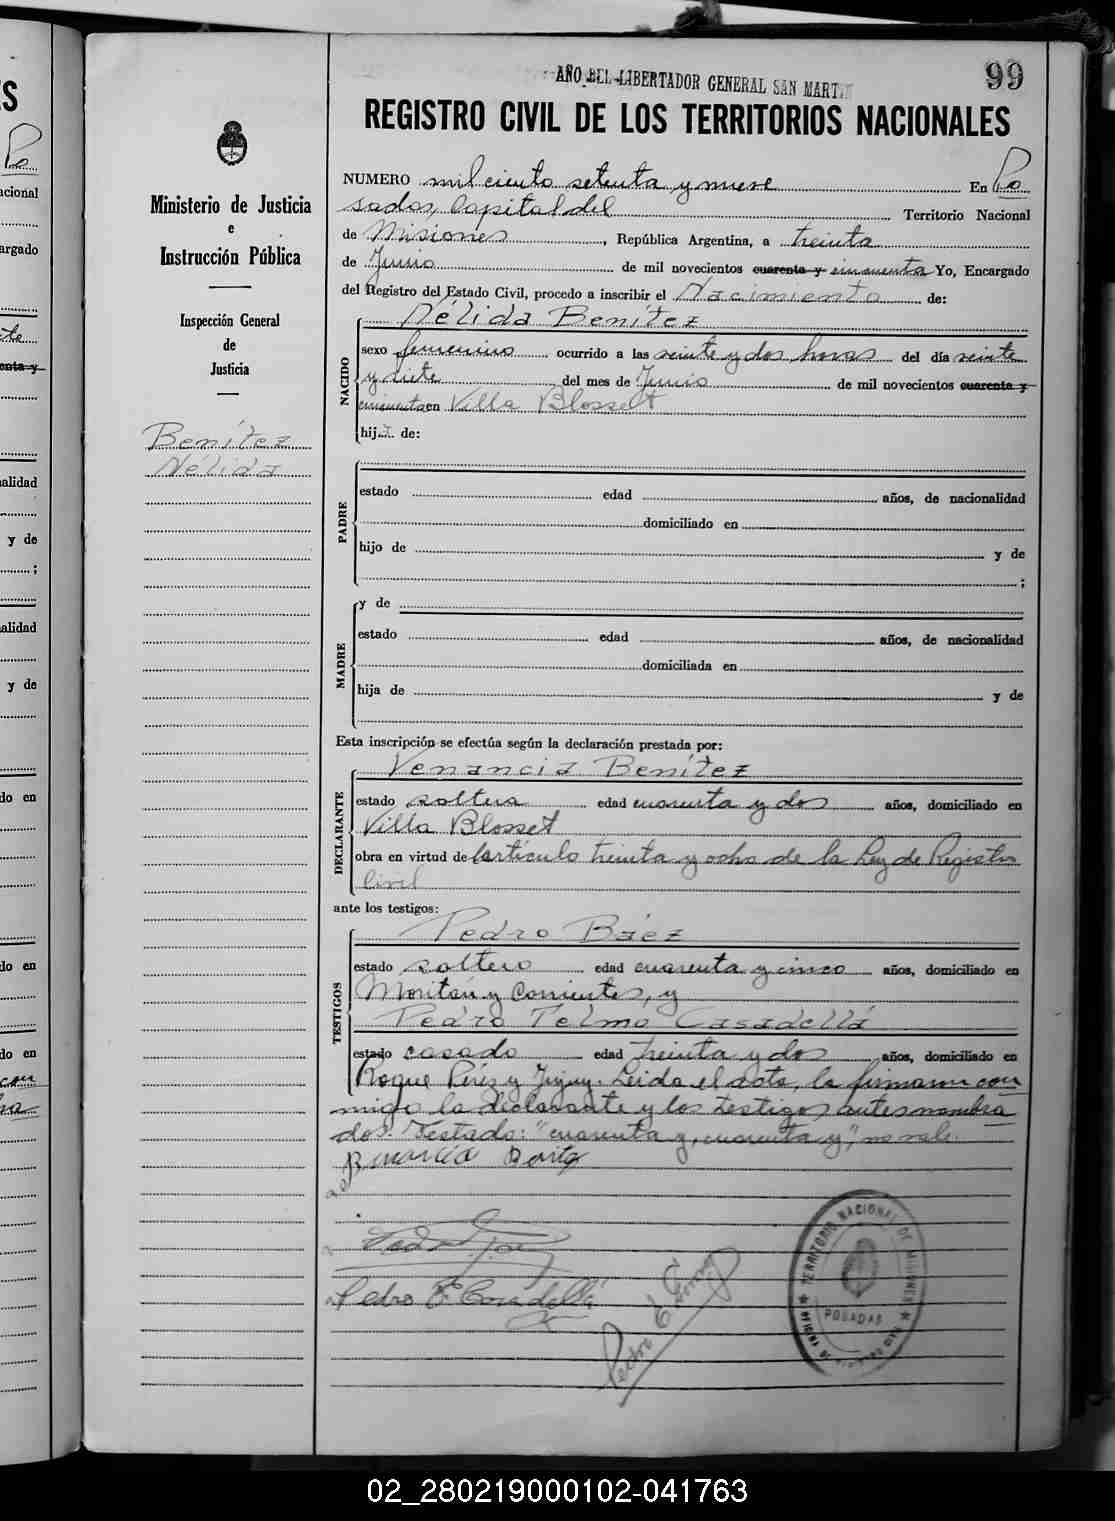 AÑO DEL LIBERTADOR GENERAL SAN MARTIN
99
REGISTRO CIVIL DE LOS TERRITORIOS NACIONALES
Ministerio de Justicia
e
Instrucción Pública
Inspección General
de
Justicia
Benítez
Nélida
NUMERO mil ciento setenta y nueve En Po
sadas, Capital del Territorio Nacional
de Misiones, República Argentina, a treinta
de Junio de mil novecientos cuarenta y cincuenta Yo, Encargado
del Registro del Estado Civil, procedo a inscribir el Nacimiento de:
NACIDO
Nélida Benítez
sexo femenino ocurrido a las veinte y dos horas del día veinte
y siete del mes de Junio de mil novecientos cuarenta y
cincuenta en Villa Blosset
hija de:
PADRE
estado edad años, de nacionalidad
domiciliado en
hijo de y de
;
MADRE
y de
estado edad años, de nacionalidad
domiciliada en
hija de y de
Esta inscripción se efectúa según la declaración prestada por:
DECLARANTE
Venancia Benítez
estado soltera edad cuarenta y dos años, domiciliado en
Villa Blosset
obra en virtud de artículo treinta y ocho de la Ley de Registro
Civil
ante los testigos:
TESTIGOS
Pedro Báez
estado soltero edad cuarenta y cinco años, domiciliado en
y Corrientes, y
Pedro Telmo Casadellá
estado casado edad treinta y dos años, domiciliado en
Roque Pérez y Jujuy. Leída el acta, la firmaron con
migo la declarante y los testigos antes nombra
dos. Testado: "cuarenta y, cuarenta y", no vale.
Pedro
TERRITORIO NACIONAL DE MISIONES
POSADAS
S
acional
argado
enta y
alidad
y de
;
alidad
y de
do en
do en
do en
02_280219000102-041763